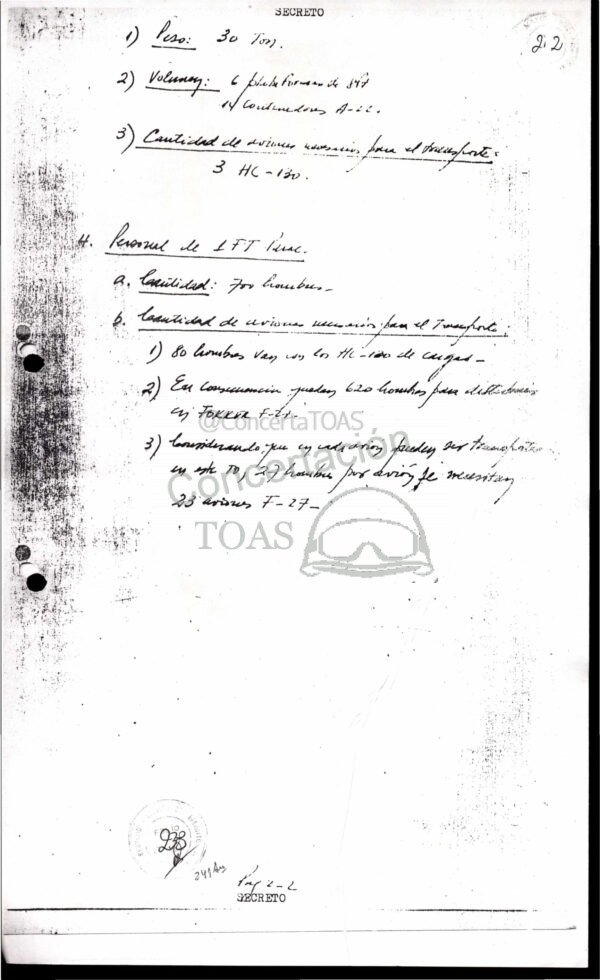 SECRETO
2.2
1) Peso: 30 Ton.
2) Volumen: 6 plataformas de 847
14 Contenedores A-22.
3) Cantidad de aviones necesarios para el transporte:
3 HC-130.
4. Personal de 1 FT Parac.
a. Cantidad: 700 hombres-
b. Cantidad de aviones necesarios para el Transporte:
1) 80 hombres van en los HC-130 de cargas-
2) En consecuencia quedan 620 hombres para
en FOKKER F-27.
@ConcertaTOAS
3) Considerando que en cada avión pueden ser
en este TO, 27 hombres por avión se necesitan
Concertación
23 aviones F-27-
TOAS
238
241
Pag 2-2
SECRETO